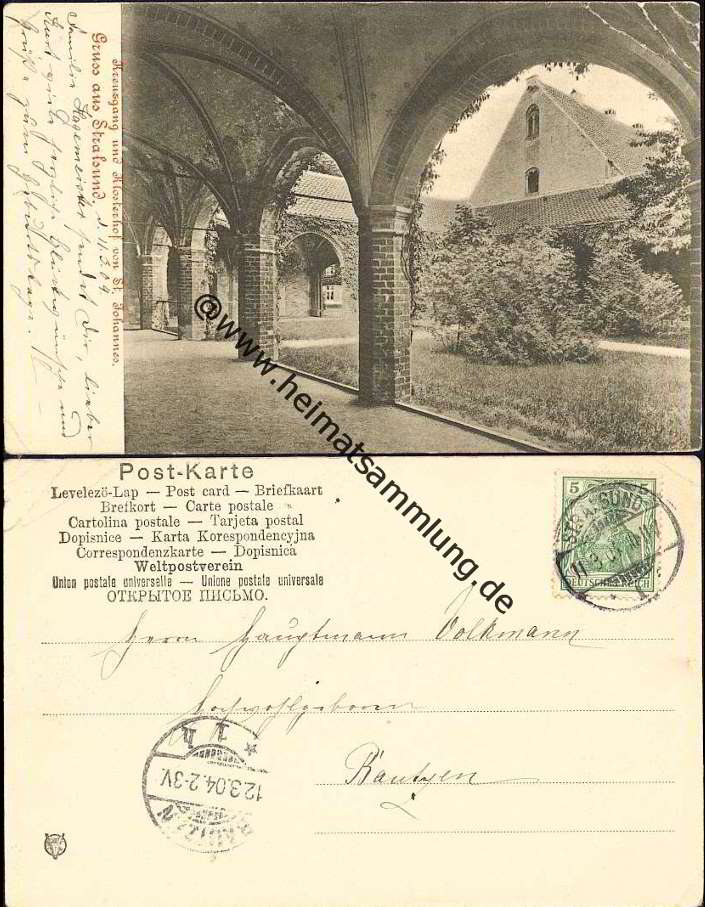 Kreuzgang und Klosterhof von St. Johannes.
Gruss aus Stralsund, d. 11.3.04
Familie Hagemeister sendet Dir, lieber
Kurt, viele herzliche Glückwünsche und
Grüße zum Geburtstage.
©www.heimatsammlung.de
Post-Karte
Levelezö-Lap — Post card — Briefkaart
Brefkort — Carte postale
Cartolina postale — Tarjeta postal
Dopisnice — Karta Korespondencyjna
Correspondenzkarte — Dopisnica
Weltpostverein
Union postale universelle — Unione postale universale
ОТКРЫТОЕ ПИСЬМО.
5
STRALSUND
11.3.04
DEUTSCHES REICH
Herrn Hauptmann Volkmann
Hochwohlgeboren
Bautzen
BAUTZEN
12.3.04.2-3V.